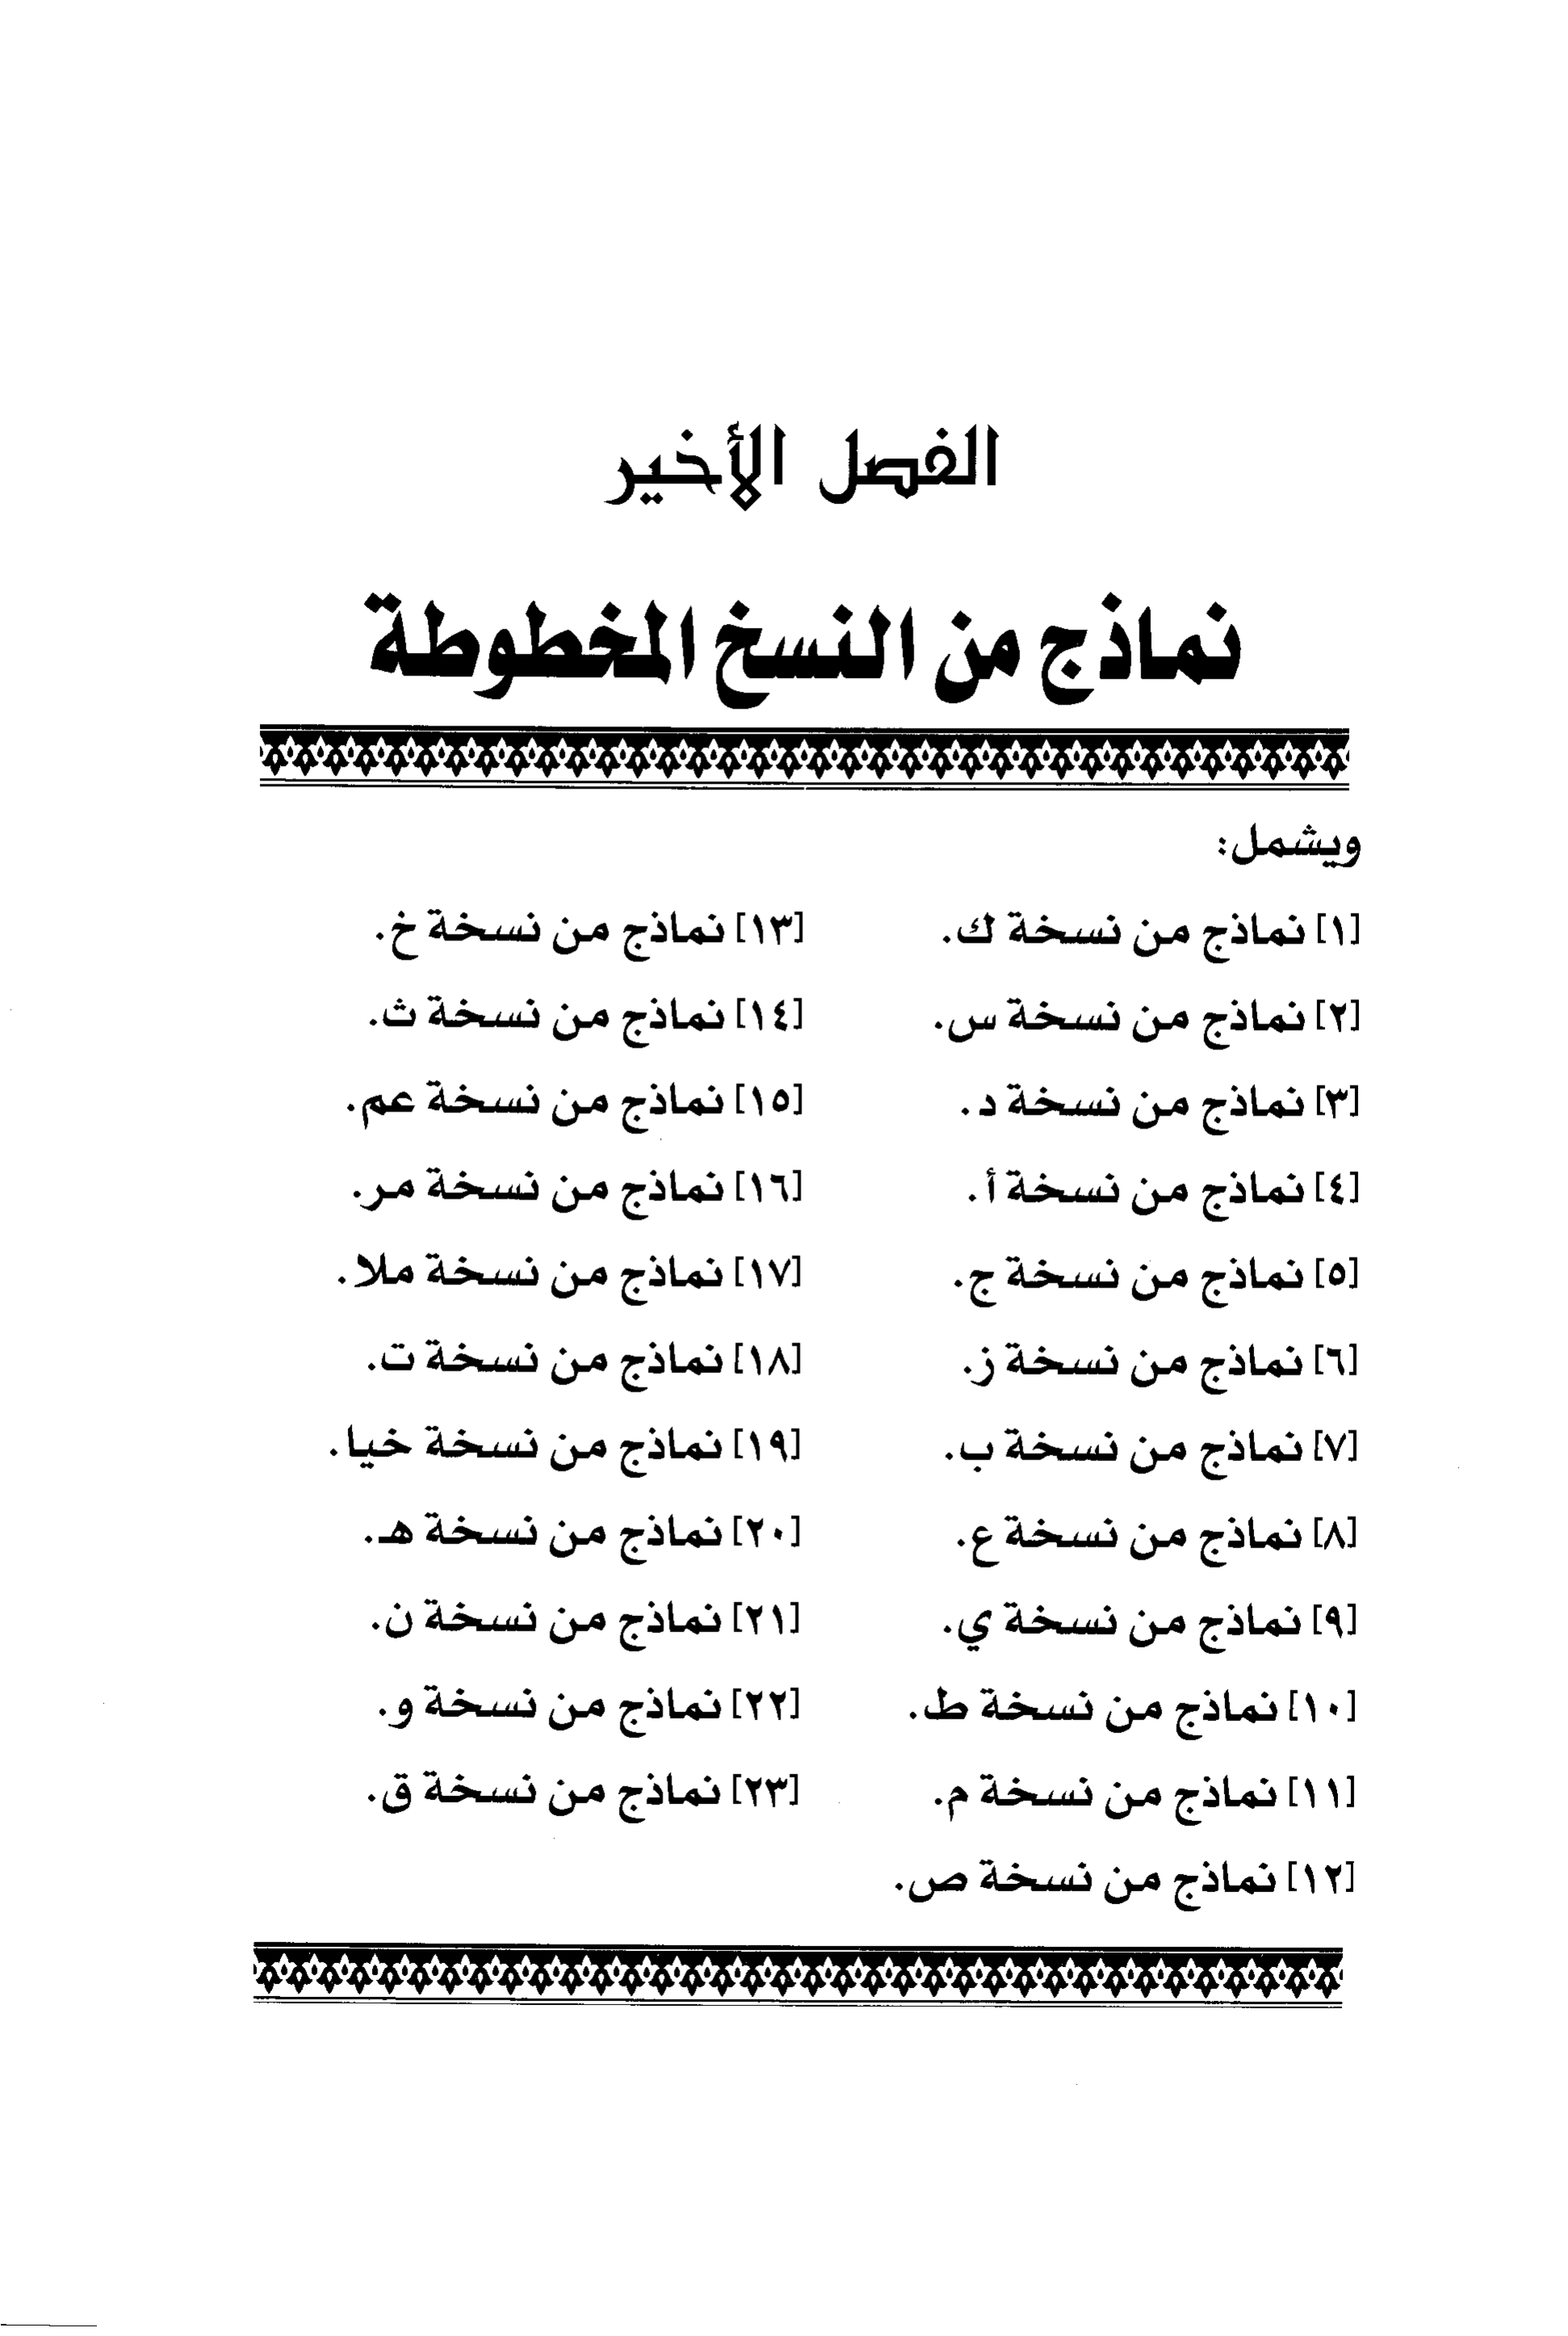 الفصل الأخير
نماذج من النسخ المخطوطة
ويشمل:
[١] نماذج من نسخة ك.
[٢] نماذج من نسخة س.
[٣] نماذج من نسخة د.
[٤] نماذج من نسخة أ.
[٥] نماذج من نسخة ج.
[٦] نماذج من نسخة ز.
[٧] نماذج من نسخة ب.
[٨] نماذج من نسخة ع.
[٩] نماذج من نسخة ي.
[١٠] نماذج من نسخة ط.
[١١] نماذج من نسخة م.
[١٢] نماذج من نسخة ص.
[١٣] نماذج من نسخة خ.
[١٤] نماذج من نسخة ث.
[١٥] نماذج من نسخة عم.
[١٦] نماذج من نسخة مر.
[١٧] نماذج من نسخة ملا.
[١٨] نماذج من نسخة ت.
[١٩] نماذج من نسخة خيا.
[٢٠] نماذج من نسخة هـ.
[٢١] نماذج من نسخة ن.
[٢٢] نماذج من نسخة و.
[٢٣] نماذج من نسخة ق.